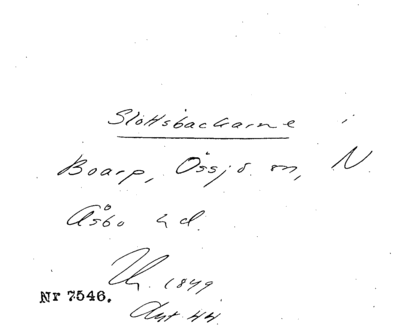 Slottsbackarne i
Boarp, Össjö sn, N.
Åsbo hd.
Th. 1849
Nr 7546.
Ant 44